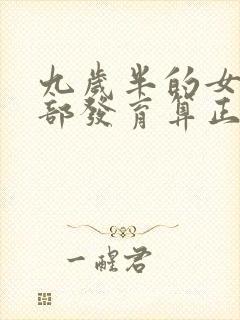 九歲半的女
部發育算正
一醒君